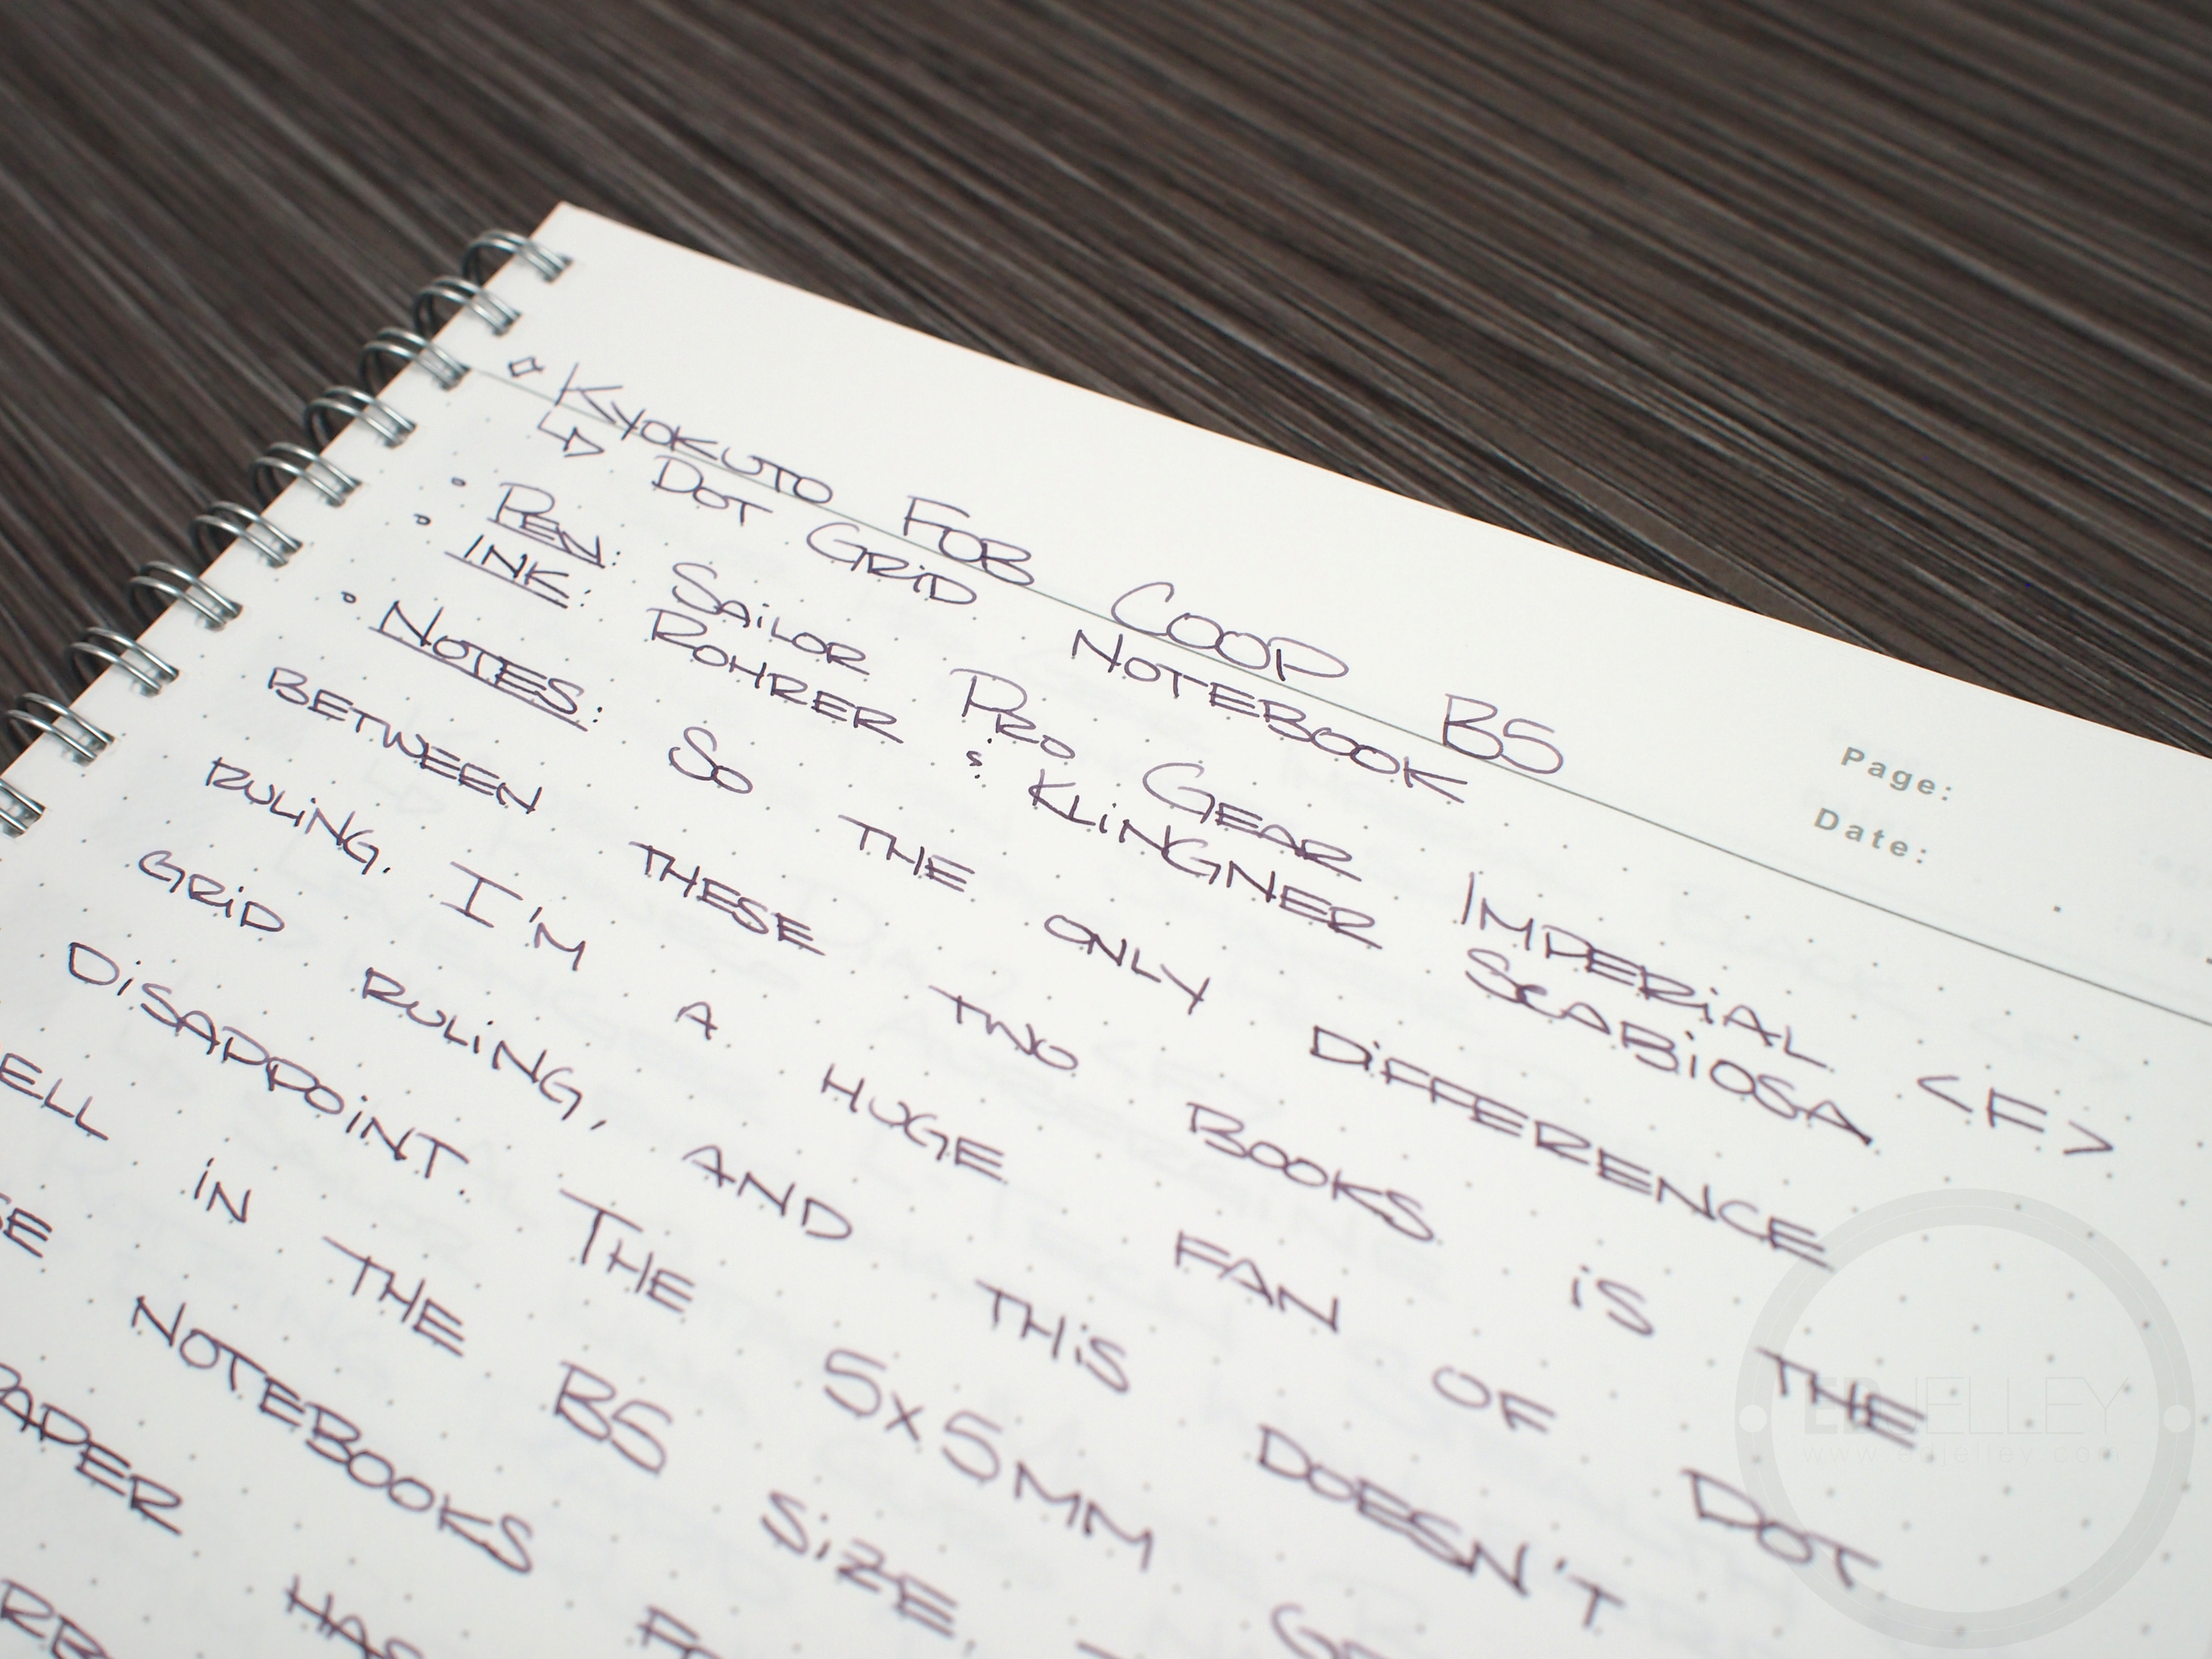 KYOKUTO FOB COOP B5
DOT GRID NOTEBOOK
Page:
Date:
PEN: SAILOR PRO GEAR IMPERIAL <F>
INK: ROHRER & KLINGNER SCABIOSA
NOTES: SO THE ONLY DIFFERENCE
BETWEEN THESE TWO BOOKS IS THE
RULING. I'M A HUGE FAN OF DOT
GRID RULING, AND THIS DOESN'T
DISAPPOINT. THE 5x5MM
ELL IN THE B5 SIZE.
SE NOTEBOOKS
PAPER HAS
EDJELLEY
www.edjelley.com